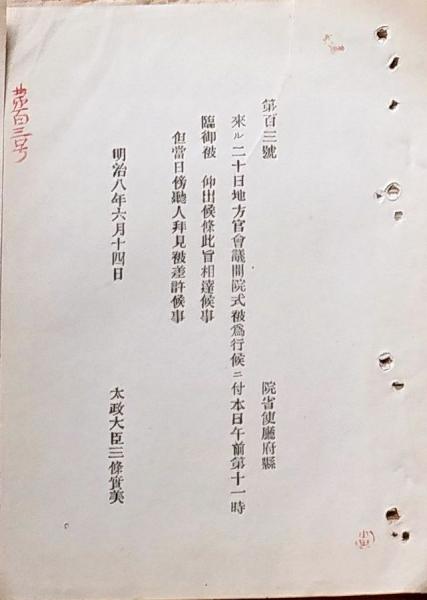 第百三號
院省使廳府縣
來ル二十日地方官會議開院式被爲行候ニ付本日午前第十一時
臨御被 仰出候條此旨相達候事
但當日傍聽人拜見被差許候事
明治八年六月十四日
太政大臣三條實美
第百三号